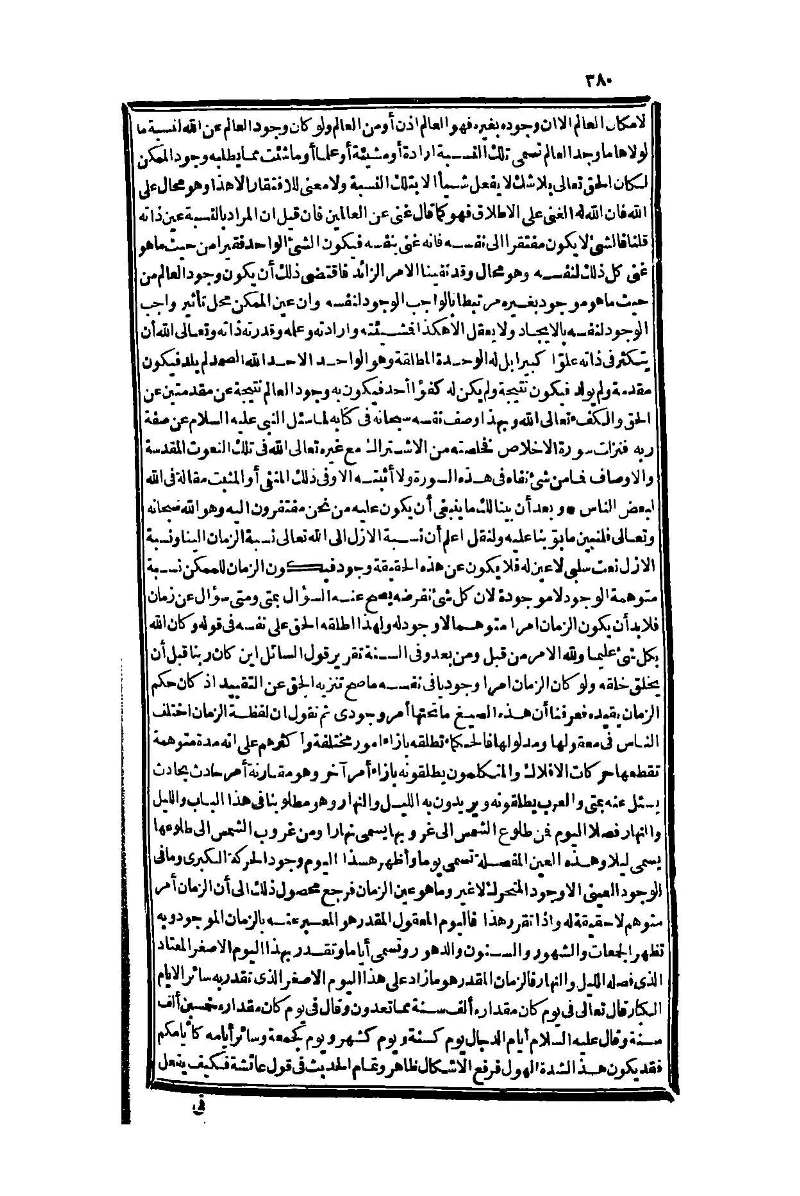 ٣٨٠
لامكان العالم الا ان وجوده بغيره فهو العالم اذن أو من العالم ولو كان وجود العالم عن الله لنسبة ما
لولاها ما وجد العالم تسمى تلك النسبة ارادة أو مشيئة أو علما أو ما شئت مما يطلبه وجود الممكن
لكان الحق تعالى بلا شك لا يفعل شيأ الا بتلك النسبة ولا معنى للافتقار الا هذا وهو محال على
الله فان الله له الغنى على الاطلاق فهو كما قال غنى عن العالمين فان قيل ان المراد بالنسبة عين ذاته
قلنا فالشئ لا يكون مفتقرا الى نفسه فانه غنى بنفسه فيكون الشئ الواحد فقيرا من حيث ما هو
غنى كل ذلك لنفسه وهو محال وقد نفينا الامر الزائد فاقتضى ذلك أن يكون وجود العالم من
حيث ما هو موجود بغيره مرتبطا بالواجب الوجود لنفسه وان عين الممكن محل تأثير واجب
الوجود لنفسه بالايجاد ولا يعقل الا هكذا فشيئته وارادته وعلمه وقدرته ذاته وتعالى الله أن
يتكثر فى ذاته علوّا كبيرا بل له الوحدة المطلقة وهو الواحد الاحد الله الصمد لم يلد فيكون
مقدمة ولم يولد فيكون نتيجة ولم يكن له كفؤا أحد فيكون به وجود العالم نتيجة عن مقدمتين عن
الحق والكفء تعالى الله وبهذا وصف نفسه سبحانه فى كتابه لما سئل النبى عليه السلام عن صفة
ربه فنزلت سورة الاخلاص تخلصت من الاشتراك مع غيره تعالى الله فى تلك النعوت المقدسة
والاوصاف فما من شئ نفاه فى هذه السورة ولا أثبته الا وفى ذلك المنفى أو المثبت مقالة فى الله
لبعض الناس * وبعد أن بينا لك ما ينبغى أن يكون عليه من نحن مفتقرون اليه وهو الله سبحانه
وتعالى فلنبين ما بوّبنا عليه ولنقل اعلم أن نسبة الازل الى الله تعالى نسبة الزمان الينا ونسبة
الازل نعت سلبى لا عين له فلا يكون عن هذه الحقيقة وجود فيكون الزمان للممكن نسبة
متوهمة الوجود لا موجودة لان كل شئ تفرضه يصح عنه السؤال بمتى ومتى سؤال عن زمان
فلا بد أن يكون الزمان امرا متوهما لا وجود له ولهذا اطلقه الحق على نفسه فى قوله وكان الله
بكل شئ عليما ولله الامر من قبل ومن بعد وفى السنة تقرير قول السائل اين كان ربنا قبل أن
يخلق خلقه ولو كان الزمان امرا وجوديا فى نفسه ما صح تنزيه الحق عن التقييد اذ كان حكم
الزمان يقيده فعرفنا أن هذه الصيغ ما تحتها أمر وجودى ثم نقول ان لفظة الزمان اختلف
الناس فى معقولها ومدلولها فالحكماء تطلقه بازاء امور مختلفة وأكثرهم على انه مدة متوهمة
تقطعها حركات الافلاك والمتكلمون يطلقونه بازاء أمر آخر وهو مقارنة أمر حادث بحادث
يسئل عنه بمتى والعرب يطلقونه ويريدون به الليل والنهار وهو مطلوبنا فى هذا الباب والليل
والنهار فصلا اليوم فمن طلوع الشمس الى غروبها يسمى نهارا ومن غروب الشمس الى طلوعها
يسمى ليلا وهذه العين المفصلة تسمى يوما وأظهر هذا اليوم وجود الحركة الكبرى وما فى
الوجود العينى الا وجود المتحرك لا غير وما هو عين الزمان فرجع محصول ذلك الى أن الزمان أمر
متوهم لا حقيقة له واذا تقرر هذا فاليوم المعقول المقدر هو المعبر عنه بالزمان الموجود وبه
تظهر الجمعات والشهور والسنون والدهور وتسمى أياما وتقدر بهذا اليوم الاصغر المعتاد
الذى فصله الليل والنهار فالزمان المقدر هو ما زاد على هذا اليوم الاصغر الذى تقدر به سائر الايام
الكبار قال تعالى فى يوم كان مقداره ألف سنة مما تعدون وقال فى يوم كان مقداره خمسين ألف
سنة وقال عليه السلام أيام الدجال يوم كسنة ويوم كشهر ويوم كجمعة وسائر أيامه كأيامكم
فقد يكون هذا لشدة الهول فرفع الاشكال ظاهر وتمام الحديث فى قول عائشة فكيف يفعل
فى